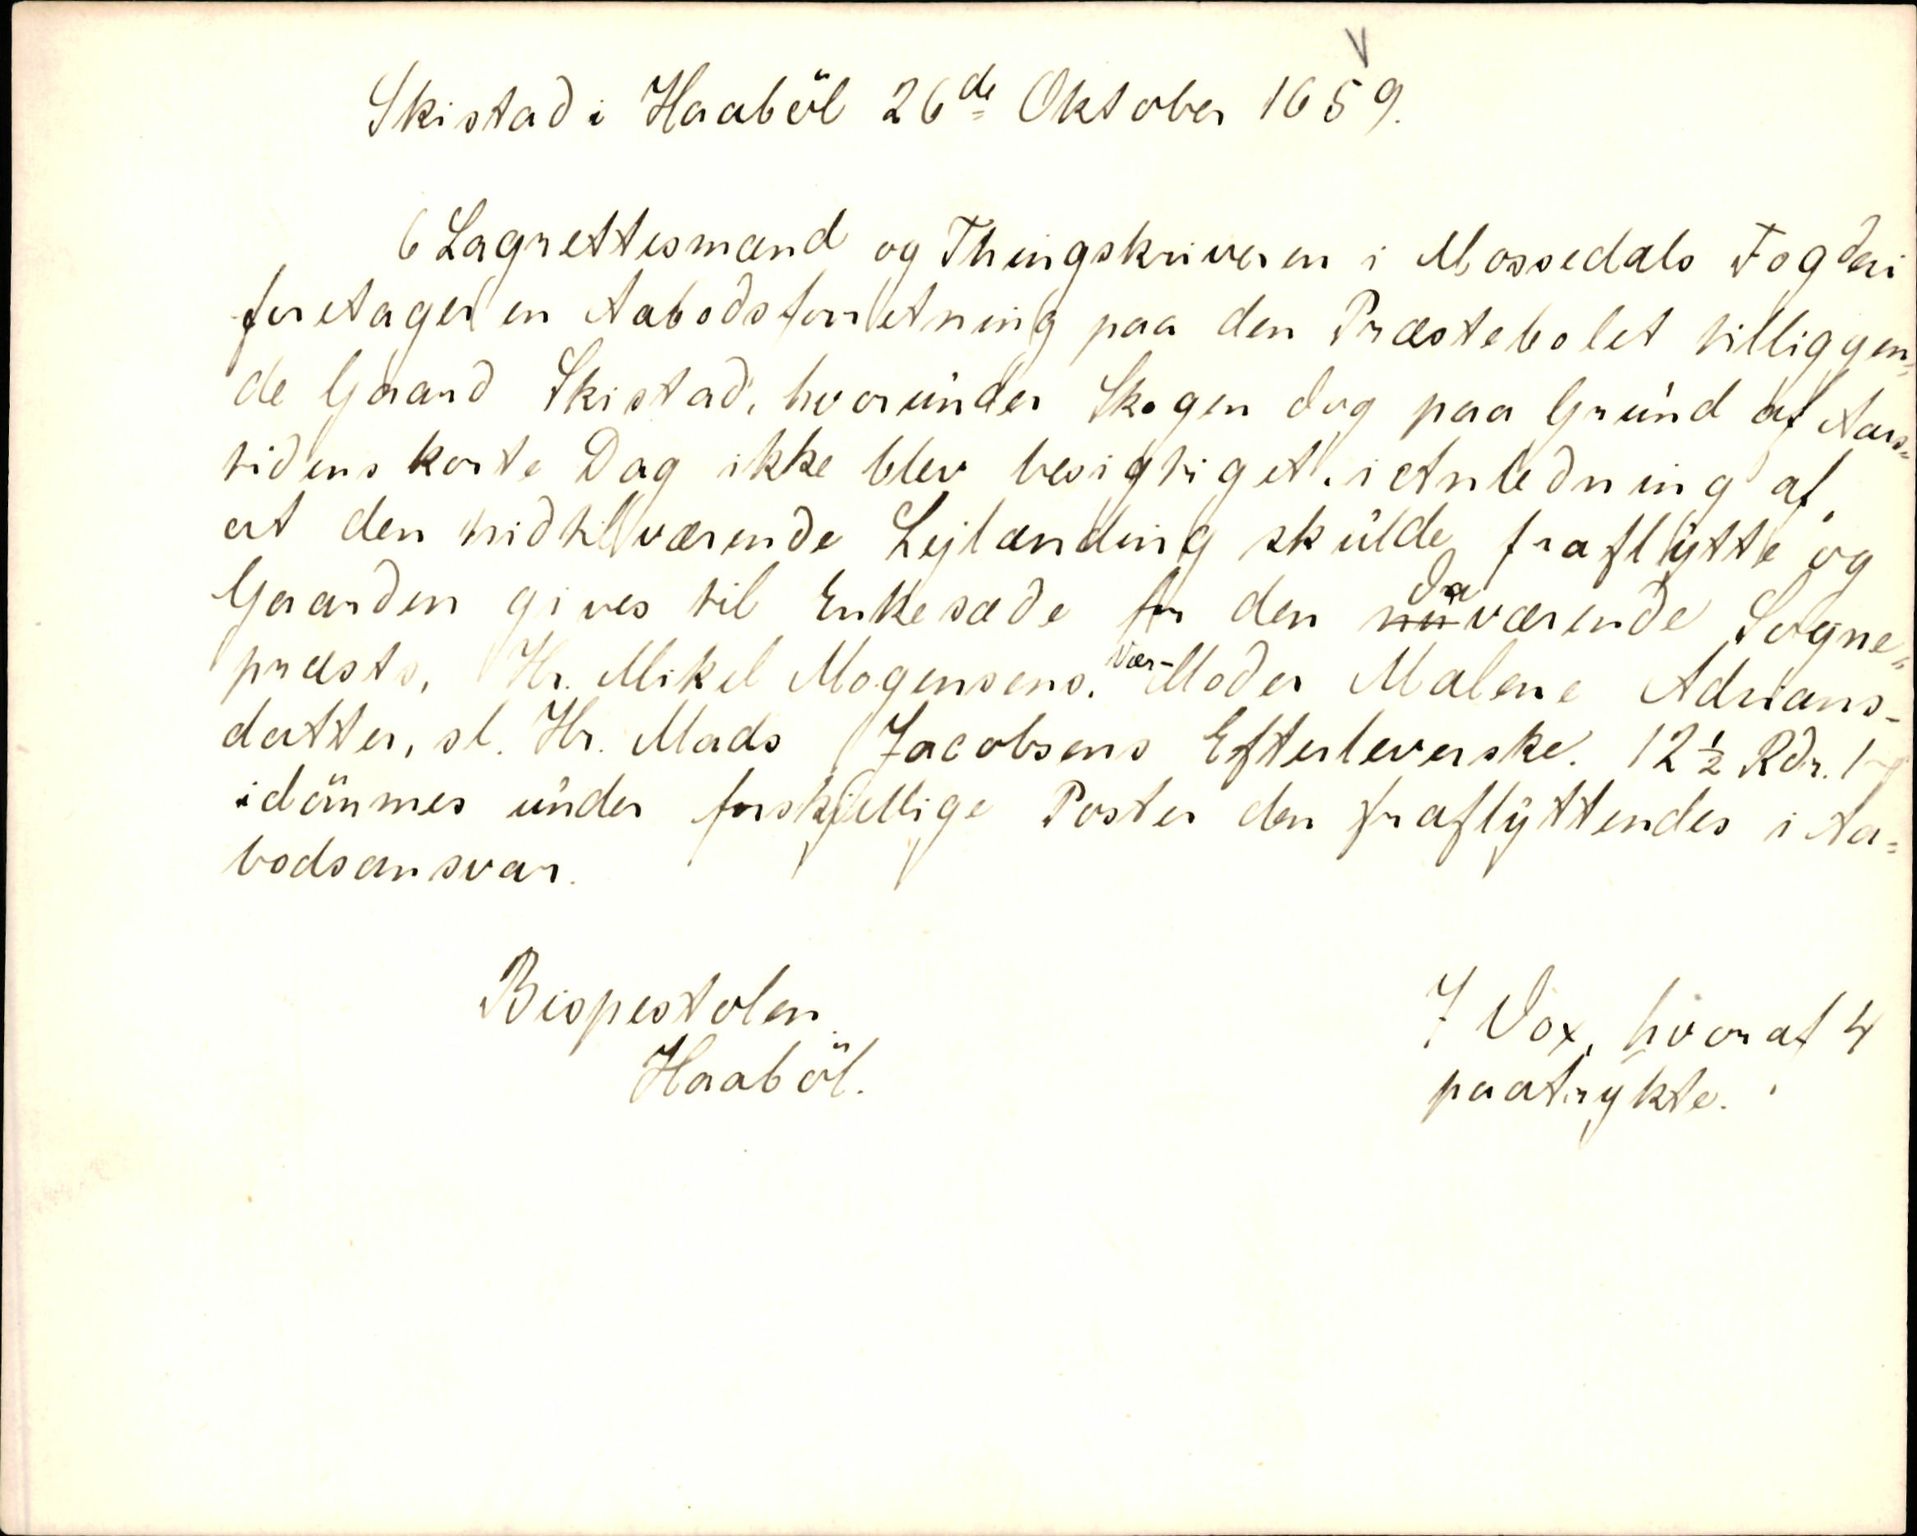 Skistad i Haaböl 26de Oktober 1659.
6 Lagrettesmænd og Thingskriveren i Mossedals Fogderi
foretager en Aabodsforretning paa den Præstebolet tilliggen-
de Gaard Skistad, hvorunder Skogen dog paa Grund af Aars-
tidens korte Dag ikke blev besigtiget, i Anledning af,
at den hidtilværende Lejlænding skulde fraflytte og
Gaarden gives til Enkesæde for den da værende Sogne-
præsts, Hr. Mikel Mogensens, Vær-Moder Malene Adrians-
datter, sl. Hr. Mads Jacobsens Efterleverske. 12 ½ Rdr. 1
idömmes under forskjellige Poster den fraflyttendes i Aa-
bodsansvar.
Bispestolen
Haaböl.
7 Vox, hvoraf 4
paatrykte.